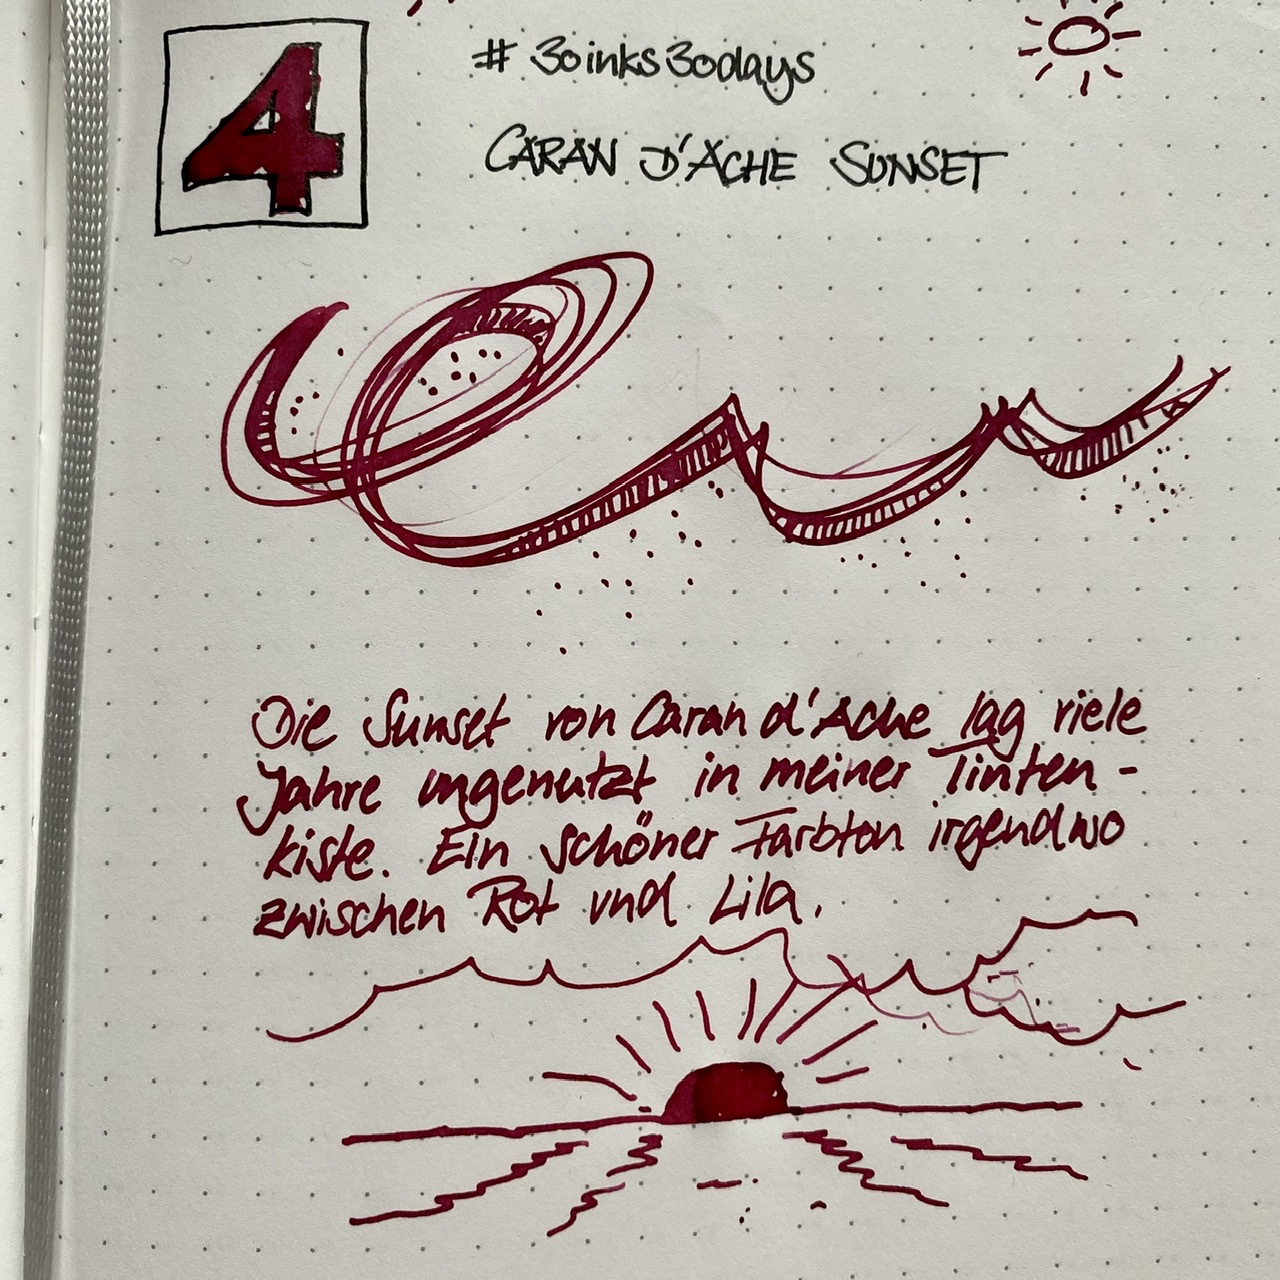 4
# 30inks30days
CARAN D'ACHE SUNSET
Die Sunset von Caran d'Ache lag viele
Jahre ungenutzt in meiner Tinten-
kiste. Ein schöner Farbton irgendwo
zwischen Rot und Lila.